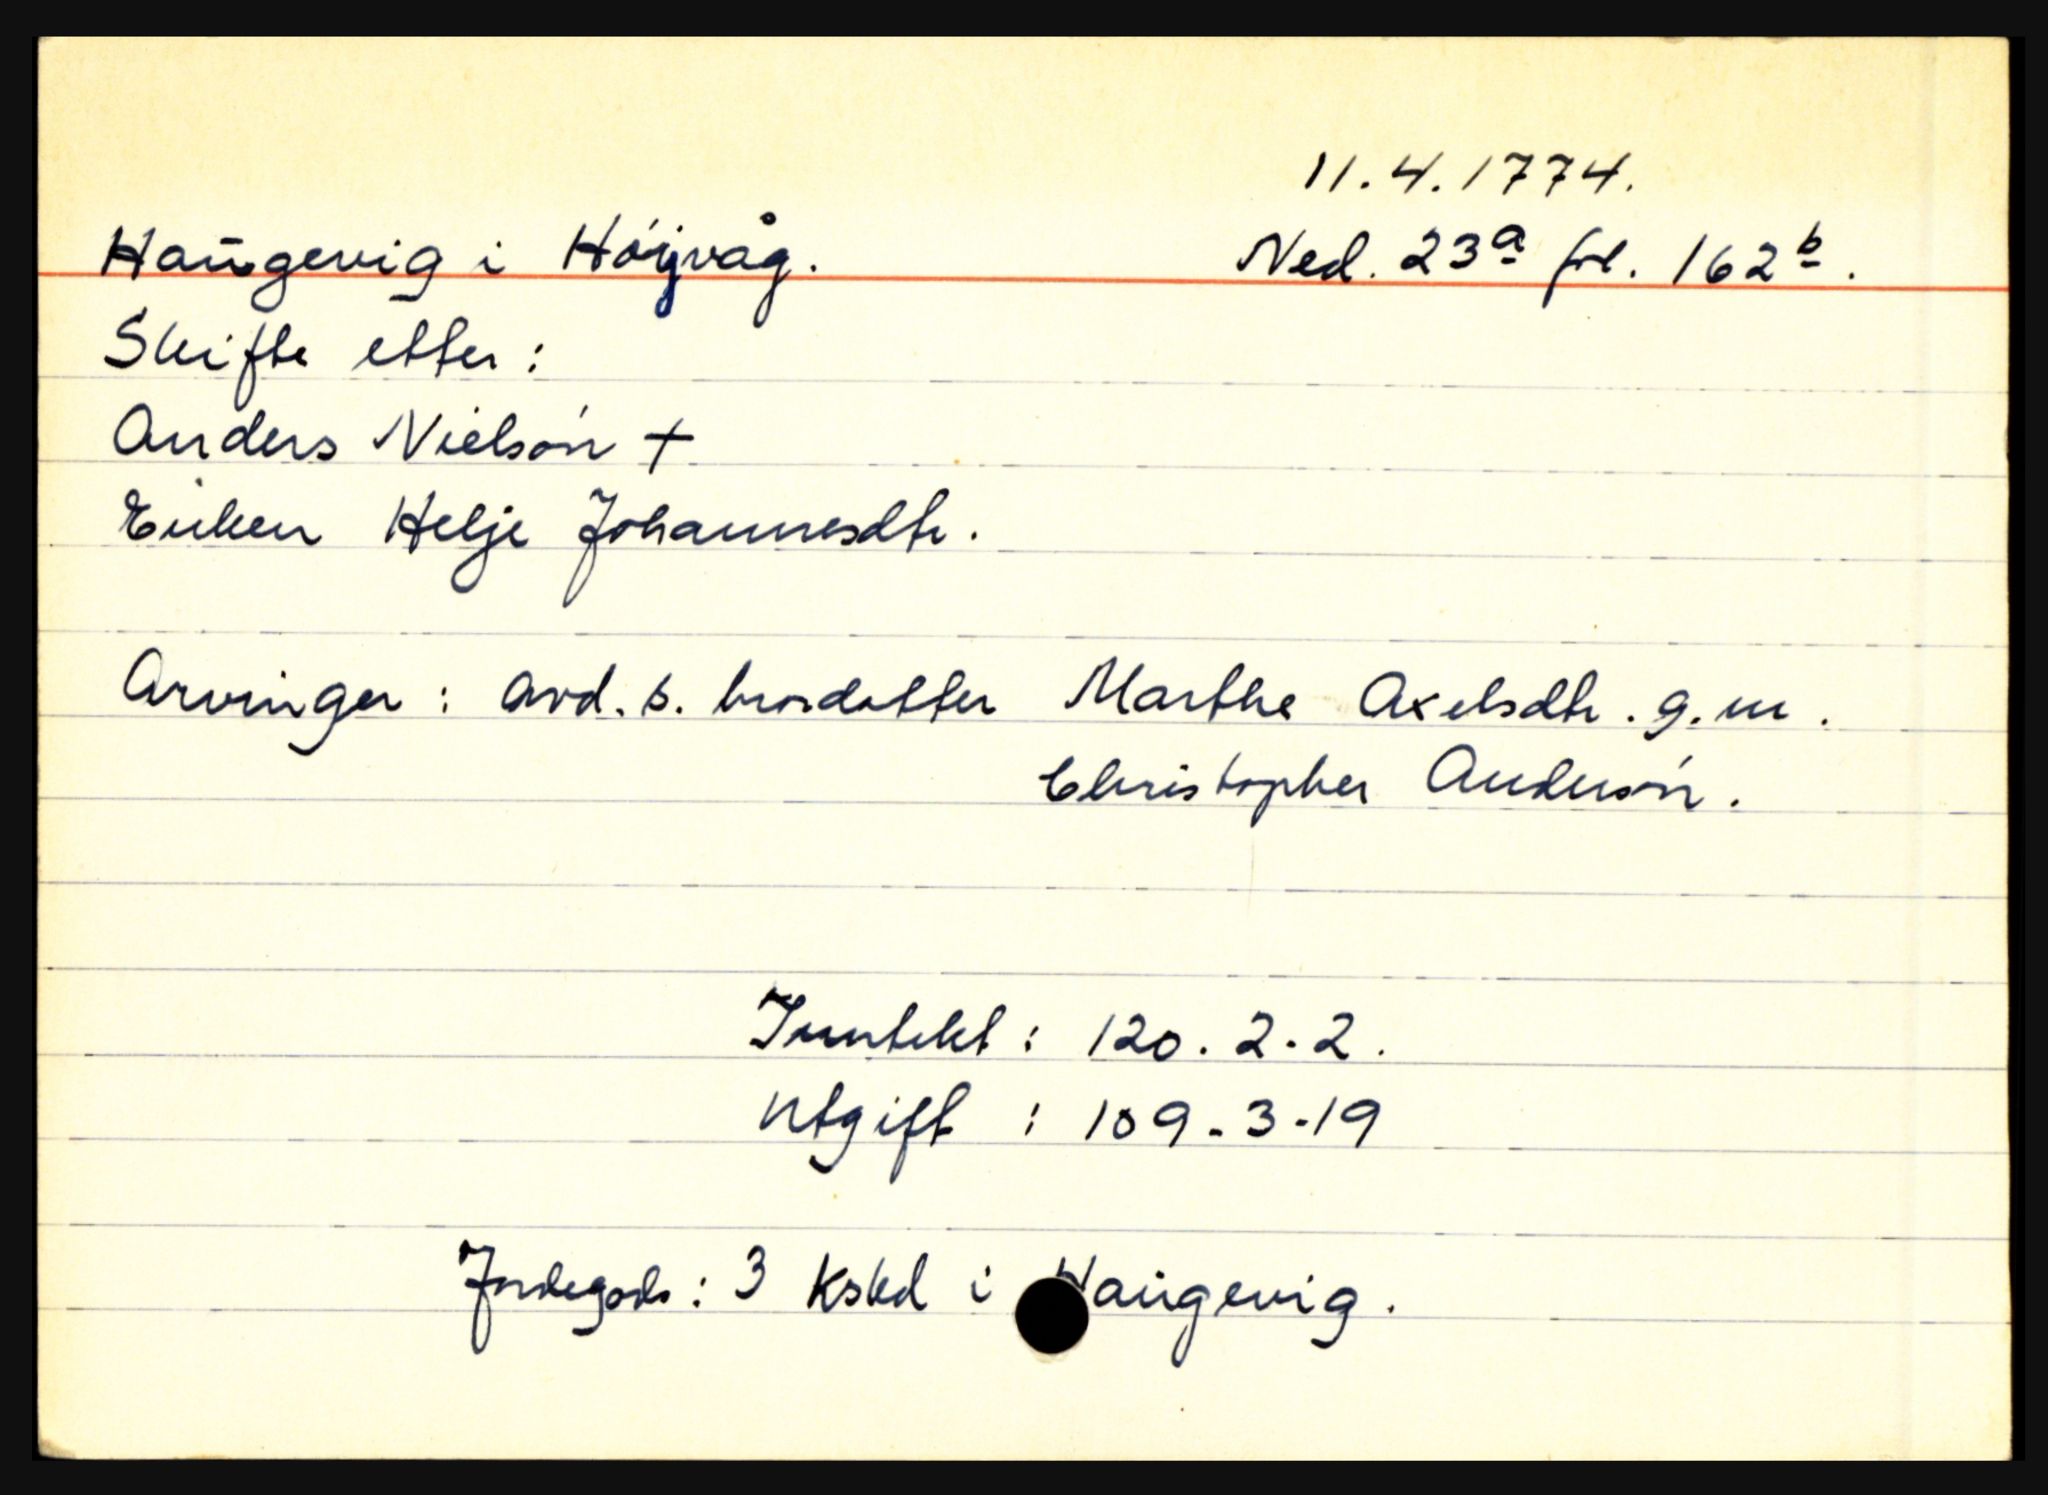 11.4.1774.
Haugevig i Höijvåg. Ned. 23a fol. 162b.
Skifte etter:
Anders Nielsön +
Enken Helje Johannesdtr.
Arvinger: avd. s. brordatter Marthe Axelsdtr. g. m.
Christopher Andersön.
Inntekt: 120. 2. 2.
Utgift: 109 - 3 - 19
Jordegods: 3 Kskd i Haugevig.